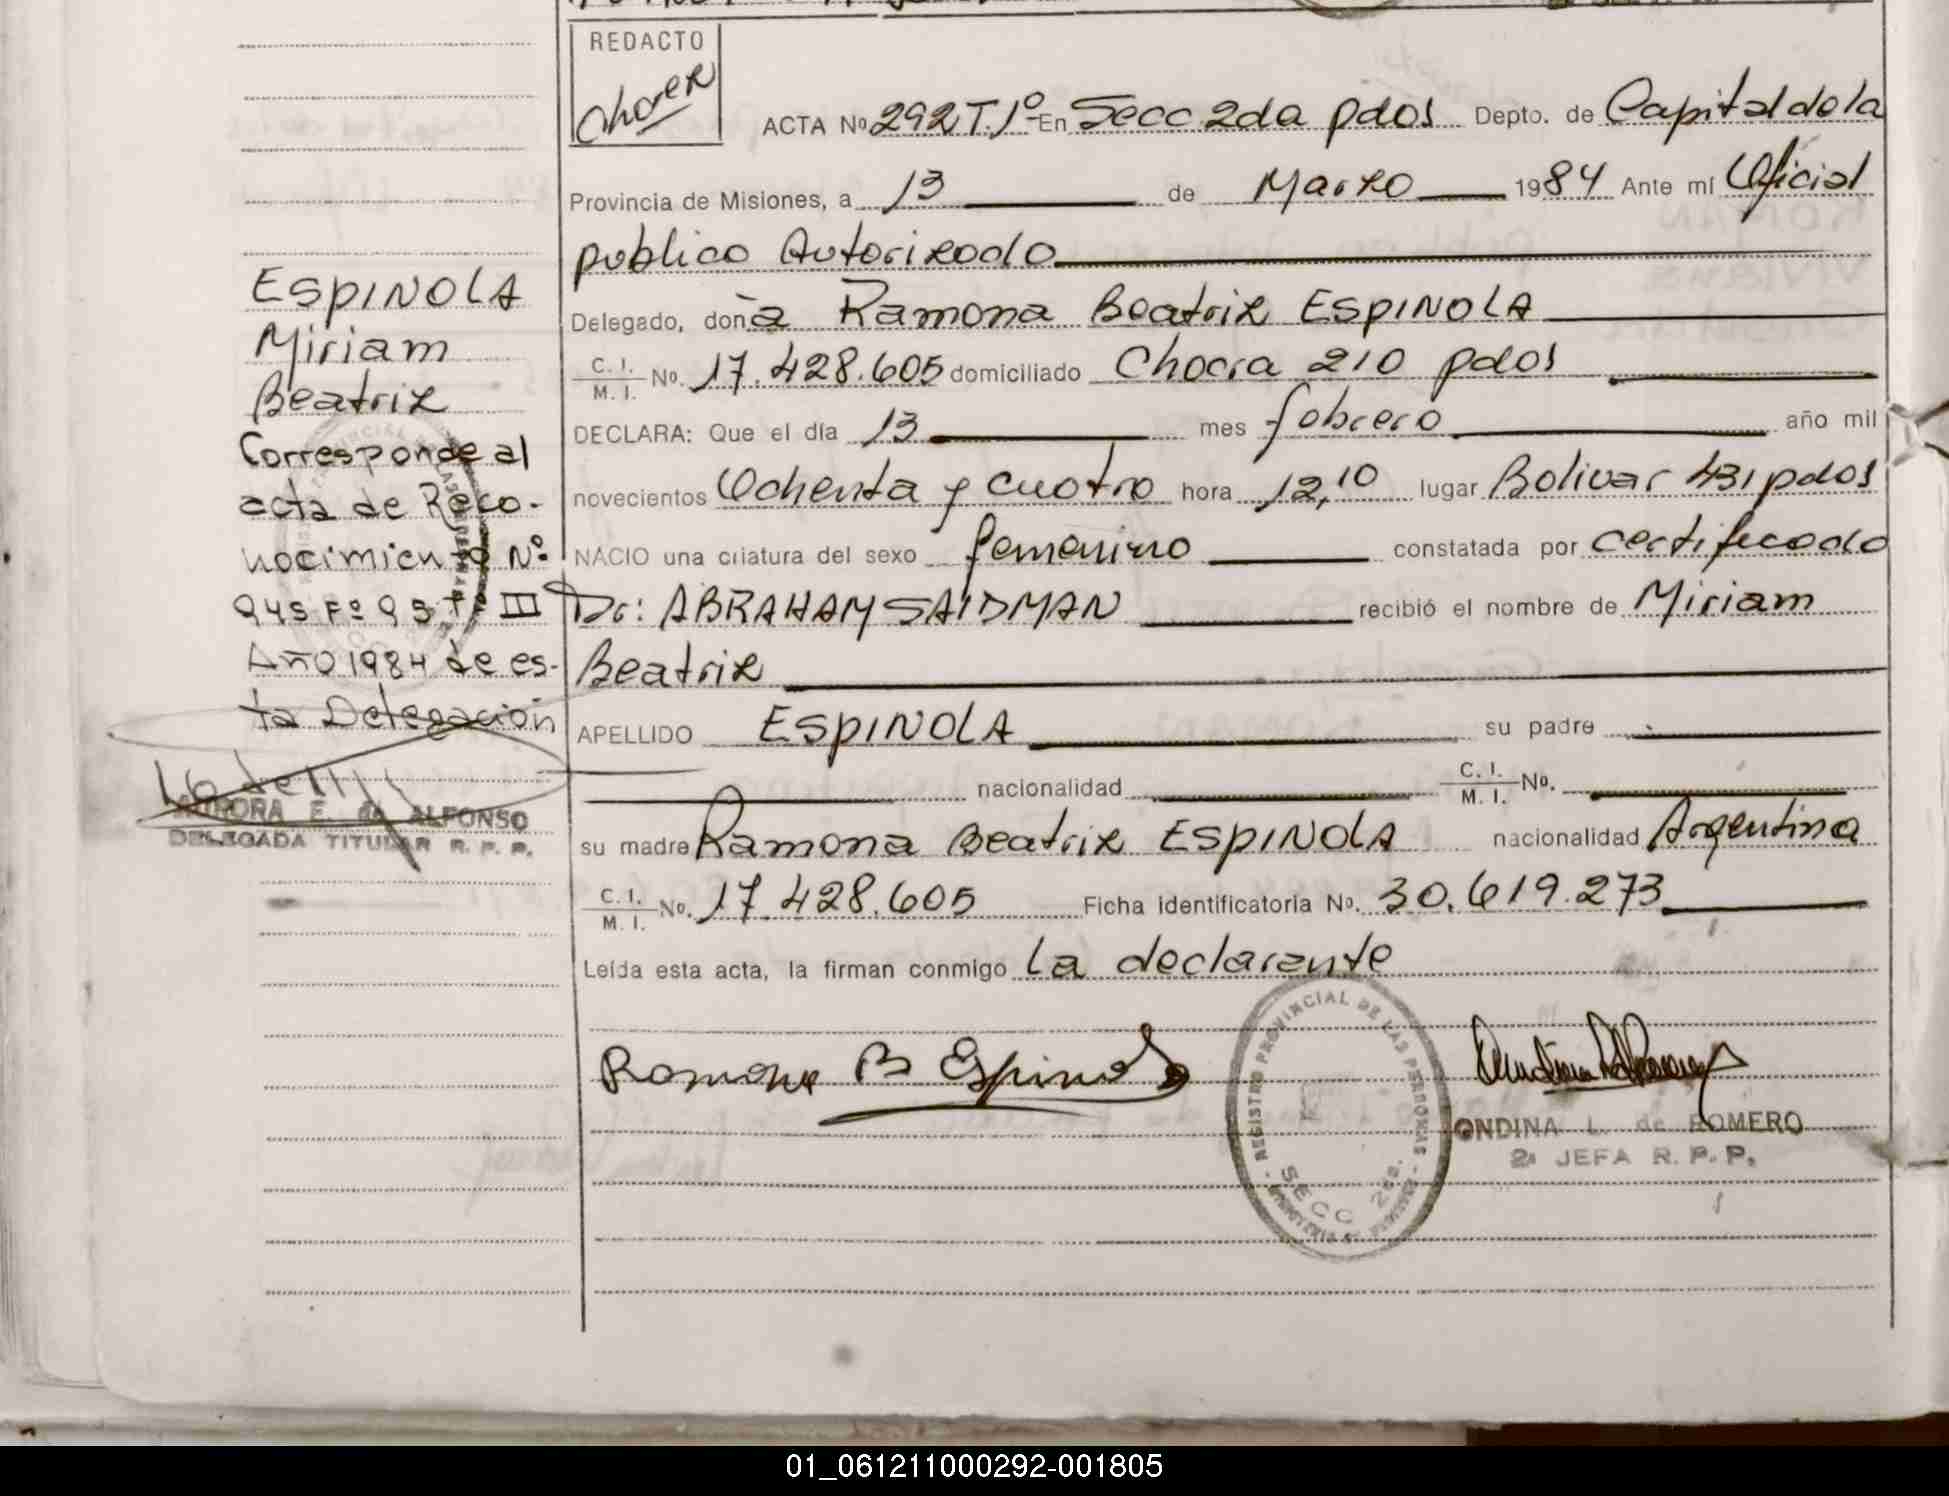 REDACTO
ACTA Nº 292 T.1º En Secc 2da pdas Depto. de Capital de la
Provincia de Misiones, a 13 de Marzo 1984 Ante mí Oficial
publico Autorizado
Delegado, doña Ramona Beatriz ESPINOLA
C. I. / M. I. Nº. 17.428.605 domiciliado Chocra 210 pdas
DECLARA: Que el día 13 mes febrero año mil
novecientos Ochenta y cuatro hora 12,10 lugar Bolivar 431 pdas
NACIO una criatura del sexo femenino constatada por certificado
Dr: ABRAHAM SAIDMAN recibió el nombre de Miriam
Beatriz
APELLIDO ESPINOLA su padre
nacionalidad C. I. / M. I. Nº.
su madre Ramona Beatriz ESPINOLA nacionalidad Argentina
C. I. / M. I. Nº. 17.428.605 Ficha identificatoria Nº. 30.619.273
Leída esta acta, la firman conmigo La declarante
Ramona B Espinola
ONDINA L. de ROMERO
2ª JEFA R. P. P.
REGISTRO PROVINCIAL DE LAS PERSONAS
SECC 2da.
ESPINOLA
Miriam
Beatriz
Corresponde al
acta de Reco-
nocimiento Nº
945 Fº 95 Tº III
Año 1984 de es-
ta Delegación
AURORA E. de ALFONSO
DELEGADA TITULAR R. P. P.
01_061211000292-001805